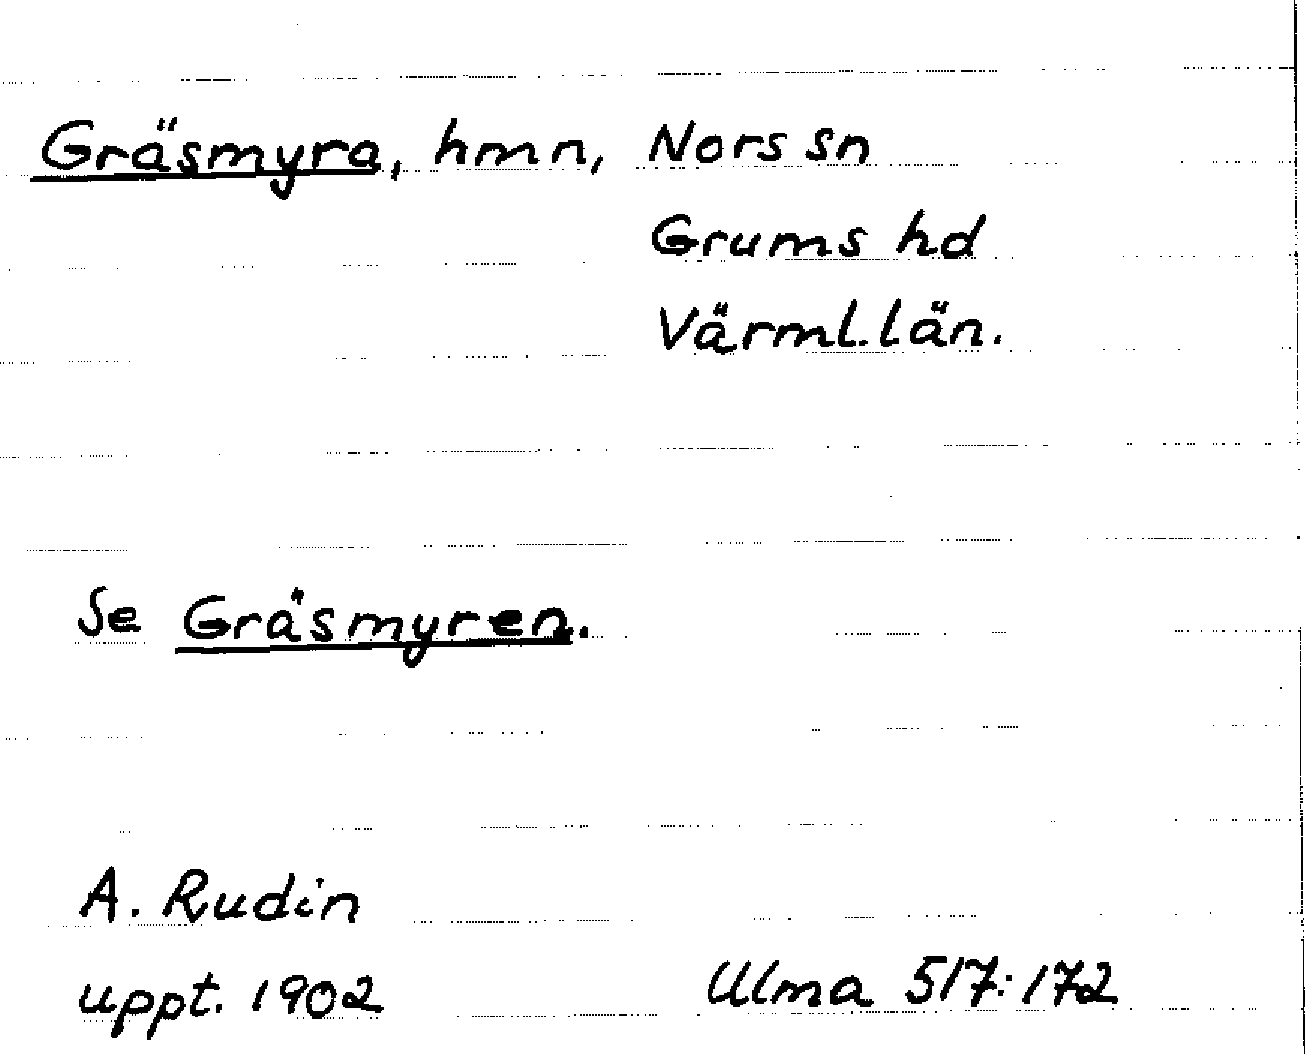 Gräsmyra, hmn, Nors sn
Grums hd
Värml. län.
Se Gräsmyren.
A. Rudin
uppt. 1902
Ulma 517:172